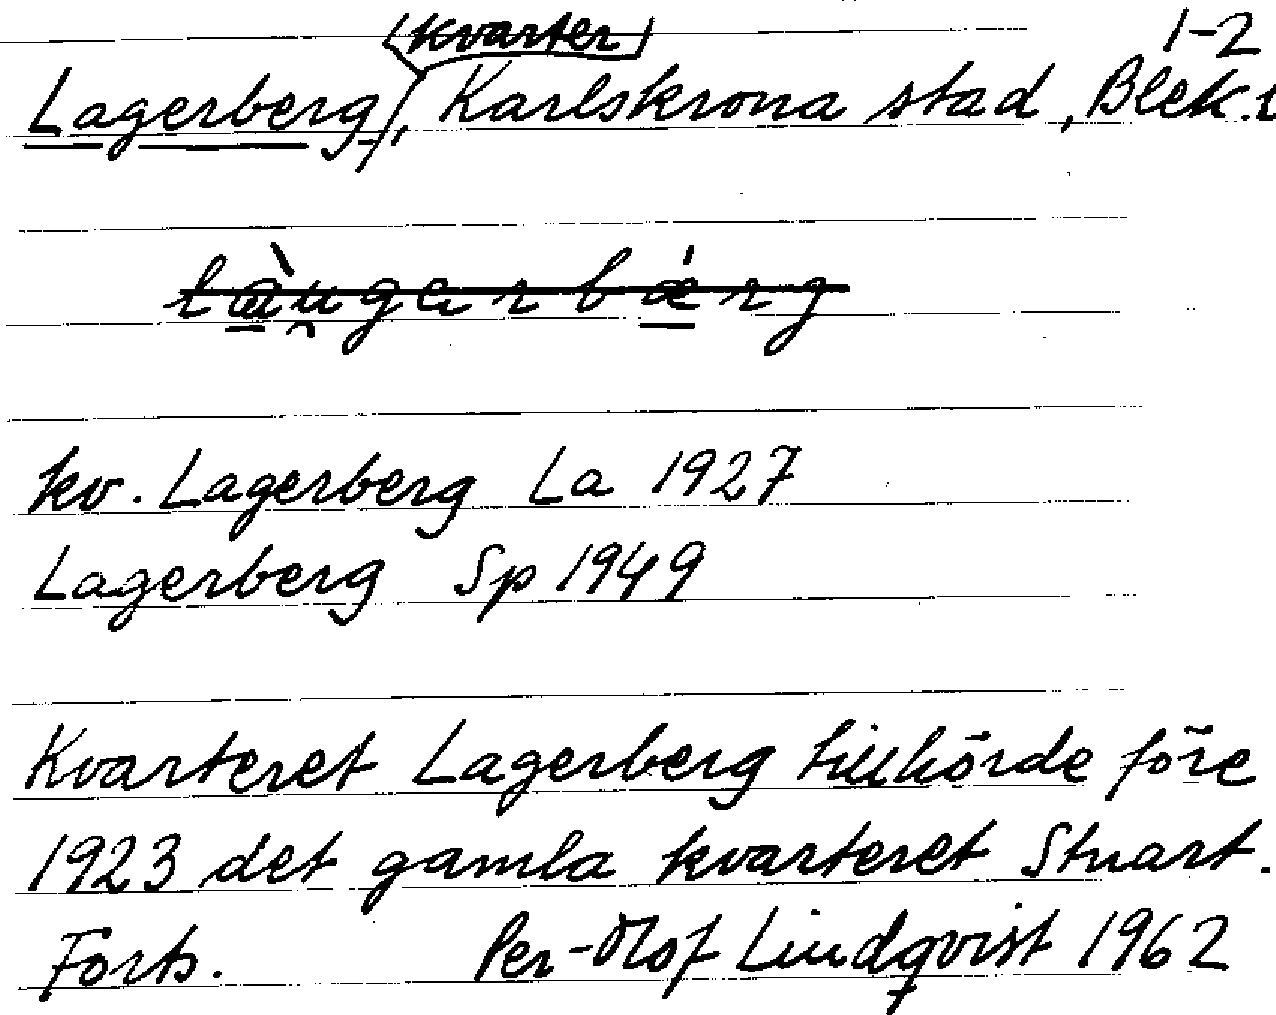 kvarter 1-2
Lagerberg, Karlskrona stad, Blek.
kv. Lagerberg La 1927
Lagerberg Sp 1949
Kvarteret Lagerberg tillhörde före
1923 det gamla kvarteret Stuart.
Forts. Per-Olof Lindqvist 1962